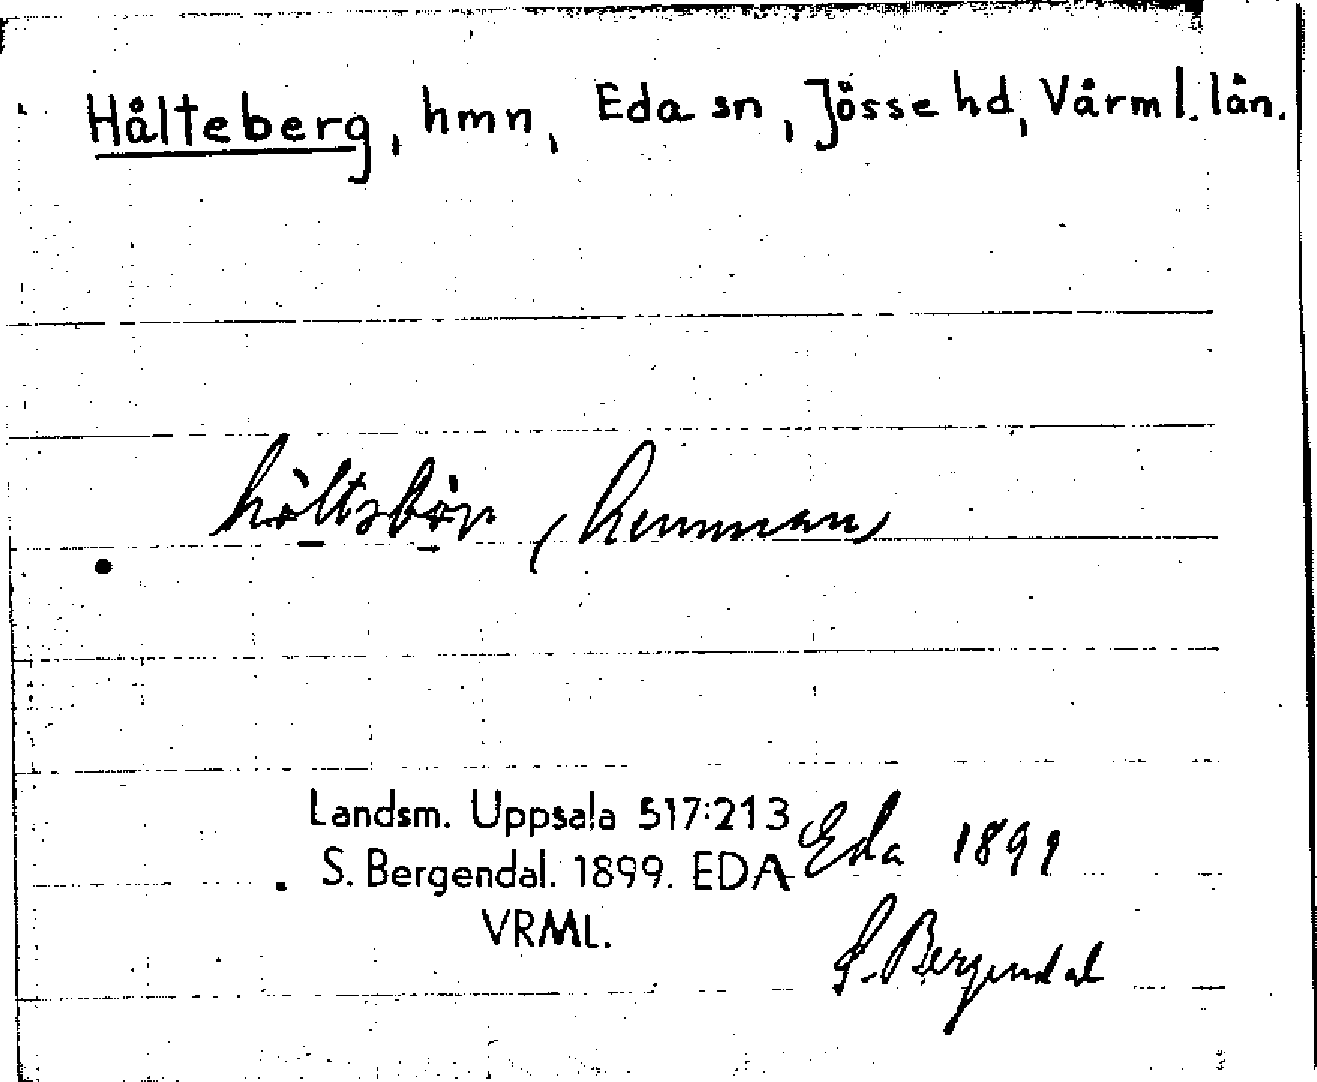 Hålteberg, hmn, Eda sn, Jösse hd, Värml. län.
(hemman)
Landsm. Uppsala 517:213
S. Bergendal. 1899. EDA
VRML.
Eda 1899
S. Bergendal